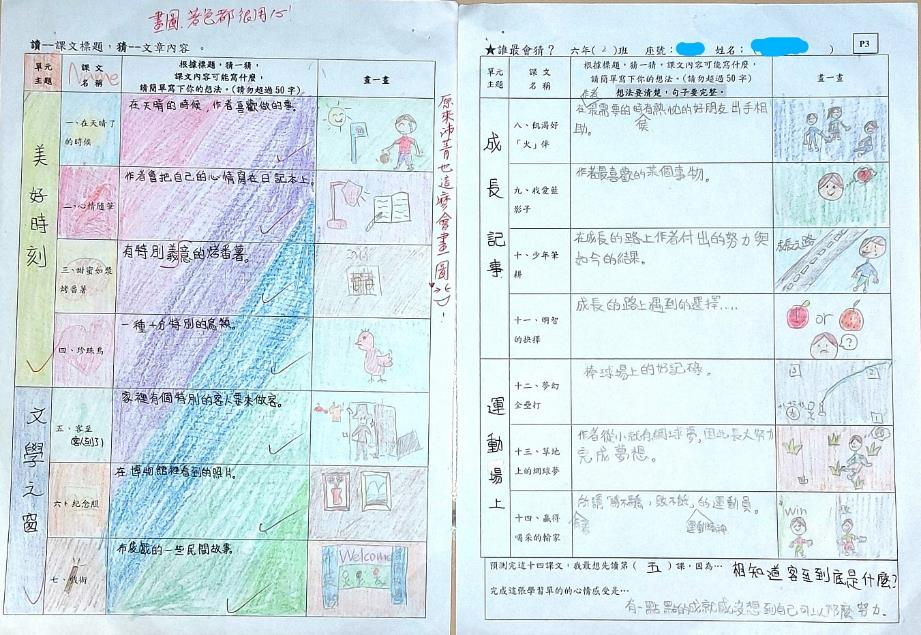 畫圖、著色都很用心
讀--課文標題,猜--文章內容 。
單元
主題
課 文
名 稱
Name
根據標題,猜一猜,
課文內容可能寫什麼,
請簡單寫下你的想法。(請勿超過50字)
畫一畫
美好時刻
一、在天晴了
的時候
在天晴的時候,作者喜歡做的事。
二、心情隨筆
作者會把自己的心情寫在日記本上。
三、甜蜜如漿
烤番薯
有特別義意的烤番薯。
四、珍珠鳥
一種十分特別的鳥類。
文學之窗
五、客至
客人到了
家裡有個特別的客人要來做客。
六、紀念照
在博物館裡看到的照片。
七、戲術
布袋戲的一些民間故事。
Welcome
原來沛菁也這麼會畫圖!
★誰最會猜? 六年(2)班 座號: 姓名:( )
P3
單元
主題
課 文
名 稱
根據標題,猜一猜,課文內容可能寫什麼,
請簡單寫下你的想法。(請勿超過50字)
想法要清楚,句子要完整。
畫一畫
成長記事
八、飢渴好
「火」伴
作者
在最需要的時有熱他的好朋友出手相
助。
候
九、我愛藍
影子
作者最喜歡的某個事物。
十、少年筆
耕
在成長的路上作者付出的努力與
如今的結果。
成長之路
十一、明智
的抉擇
成長的路上遇到的選擇....
or
?
運動場上
十二、夢幻
全壘打
棒球場上的好記碌。
十三、草地
上的網球夢
作者從小就有網球夢,因此長大努力
完成夢想。
十四、贏得
喝采的輸家
所謂「勝不驕,敗不餒」的運動員。
運動精神
win
敗
預測完這十四課文,我最想先讀第( 五 )課,因為… 想知道客至到底是什麼?
完成這張學習單的的心情感受是…
有一點點的成就感沒想到自己可以那麼努力。